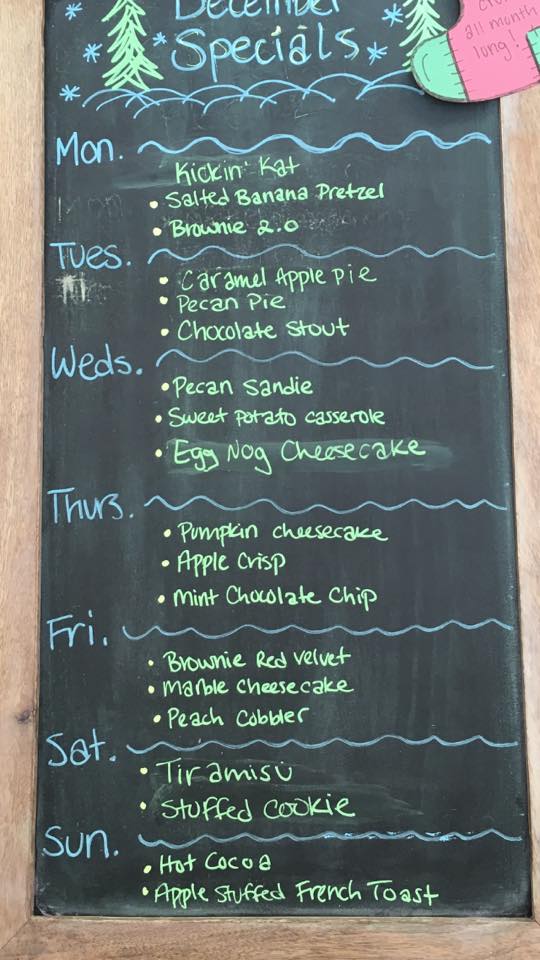 December
Specials
all month
long!
Mon.
Kickin' Kat
• Salted Banana Pretzel
• Brownie 2.0
Tues.
• Caramel Apple Pie
• Pecan Pie
• Chocolate Stout
Weds.
• Pecan Sandie
• Sweet Potato Casserole
• Egg Nog Cheesecake
Thurs.
• Pumpkin Cheesecake
• Apple Crisp
• Mint Chocolate Chip
Fri.
• Brownie Red Velvet
• Marble Cheesecake
• Peach Cobbler
Sat.
• Tiramisu
• Stuffed Cookie
Sun.
• Hot Cocoa
• Apple Stuffed French Toast